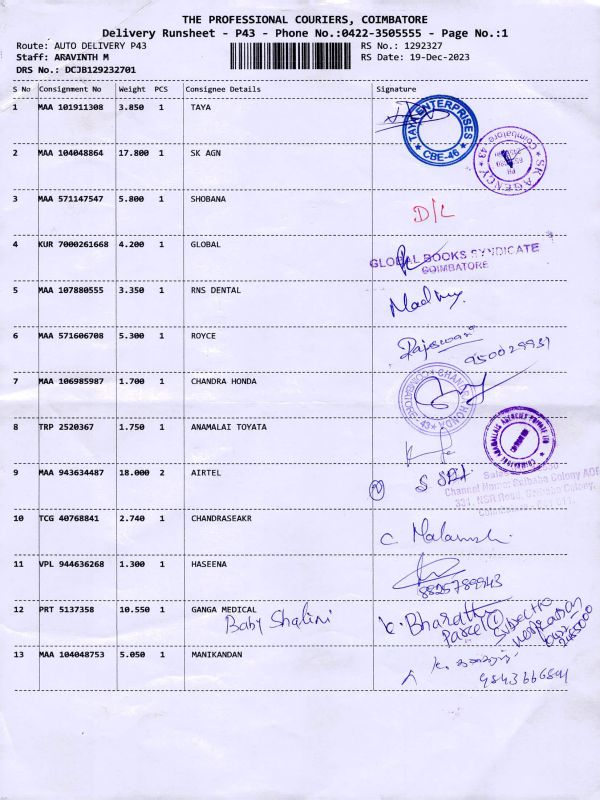 THE PROFESSIONAL COURIERS, COIMBATORE
Delivery Runsheet - P43 - Phone No.:0422-3505555 - Page No.:1
Route: AUTO DELIVERY P43 RS No.: 1292327
Staff: ARAVINTH M RS Date: 19-Dec-2023
DRS No.: DCJB129232701
S No Consignment No Weight PCS Consignee Details Signature
1 MAA 101911308 3.850 1 TAYA
TAYA ENTERPRISES
* CBE-46 *
2 MAA 104048864 17.800 1 SK AGN
SK AGENCY
Coimbatore - 43
3 MAA 571147547 5.800 1 SHOBANA D/L
4 KUR 7000261668 4.200 1 GLOBAL
GLOBAL BOOKS SYNDICATE
COIMBATORE
5 MAA 107880555 3.350 1 RNS DENTAL
6 MAA 571606708 5.300 1 ROYCE Rajeswari
950029931
7 MAA 106985987 1.700 1 CHANDRA HONDA
CHANDRA HONDA
8 TRP 2520367 1.750 1 ANAMALAI TOYATA
9 MAA 943634487 18.000 2 AIRTEL
Channel Name: Saibaba Colony
331, NSR Road, Saibaba Colony,
10 TCG 40768841 2.740 1 CHANDRASEAKR
11 VPL 944636268 1.300 1 HASEENA
8825789943
12 PRT 5137358 10.550 1 GANGA MEDICAL K. Bharath
Baby Shalini Parcel ① Subject to
13 MAA 104048753 5.050 1 MANIKANDAN
9843666891